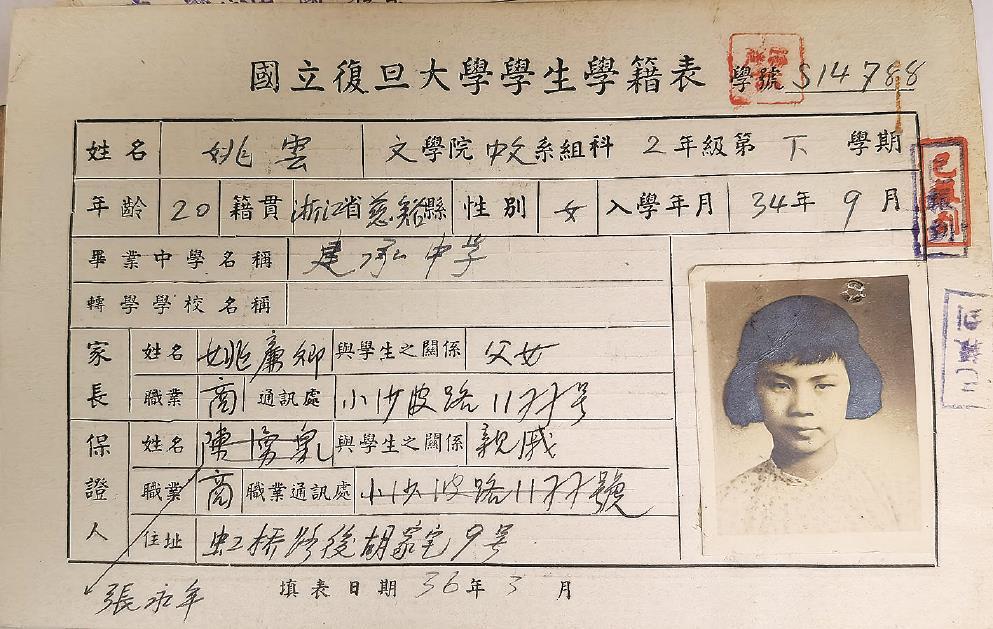 國立復旦大學學生學籍表 學號 S14788
姓名 姚雲 文學院 中文系組科 2年級第下學期
年齡 20 籍貫 浙江省慈谿縣 性別 女 入學年月 34年9月
畢業中學名稱 建承中学
轉學學校名稱
家長 姓名 姚廉卿 與學生之關係 父女
職業 商 通訊處 小沙渡路1177号
保證人 姓名 陳 與學生之關係 親戚
職業 商 職業通訊處 小沙渡路1177號
住址 虹橋路後胡家宅9号
張永年 填表日期 36年3月